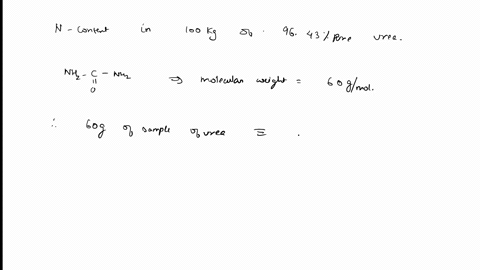 N-Content in 100 Kg of 96.43% pure urea.
NH₂-C-NH₂ ⇒ molecular weight = 60g/mol.
O
∴ 60g of sample of urea ≡ .